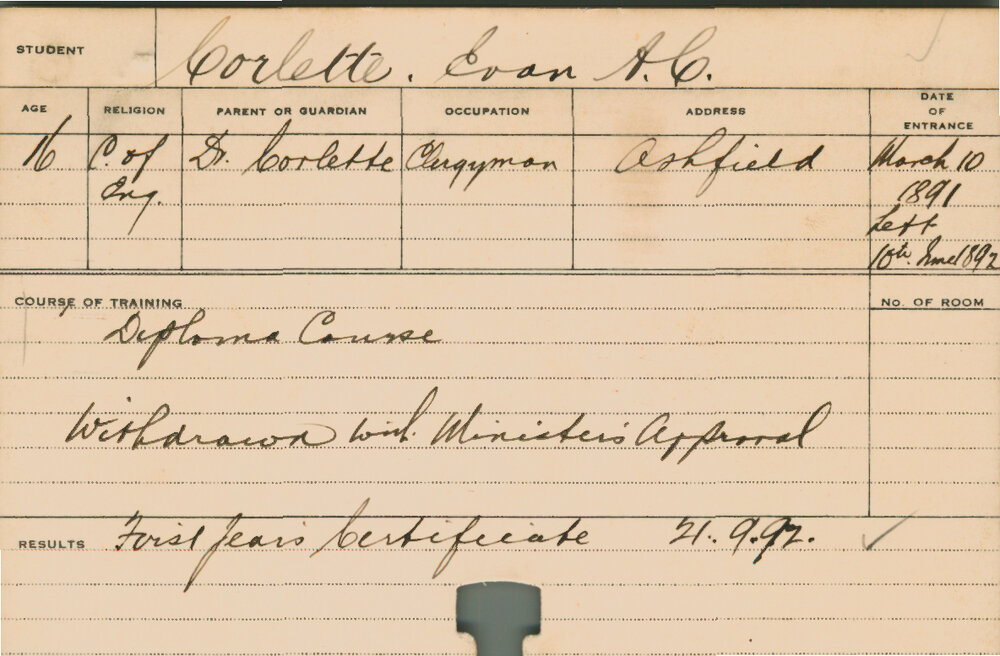 STUDENT Corlette. Evan A.C.
AGE RELIGION PARENT OR GUARDIAN OCCUPATION ADDRESS DATE OF ENTRANCE
16 C. of Eng. Dr. Corlette Clergyman Ashfield March 10
1891
Left
10th June 1892
COURSE OF TRAINING No. OF ROOM
Diploma Course
Withdrawn with Minister's Approval
RESULTS First Year's Certificate 21.9.92.